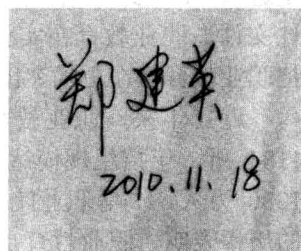 郑建英
2010.11.18